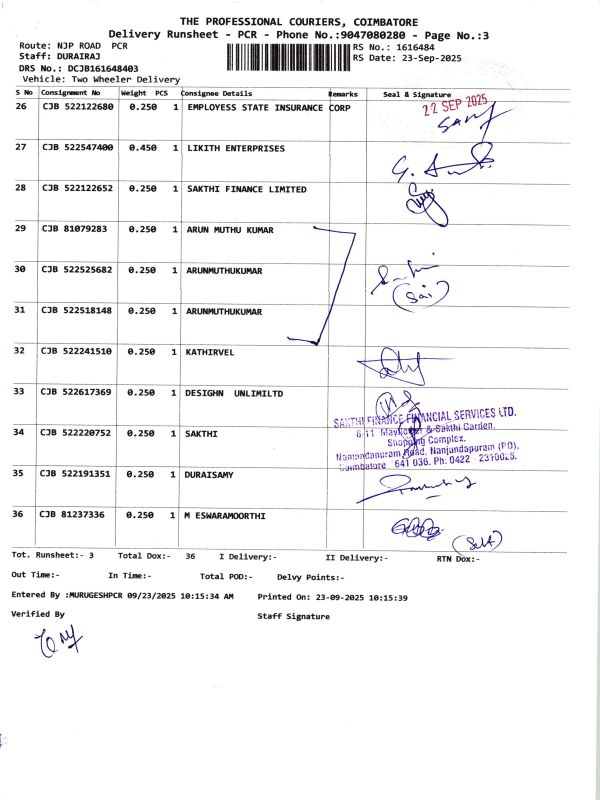 THE PROFESSIONAL COURIERS, COIMBATORE
Delivery Runsheet - PCR - Phone No.:9047080280 - Page No.:3
Route: NJP ROAD PCR
RS No.: 1616484
Staff: DURAIRAJ
RS Date: 23-Sep-2025
DRS No.: DCJB161648403
Vehicle: Two Wheeler Delivery
S No Consignment No Weight PCS Consignee Details Remarks Seal & Signature
26 CJB 522122680 0.250 1 EMPLOYESS STATE INSURANCE CORP
22 SEP 2025
27 CJB 522547400 0.450 1 LIKITH ENTERPRISES
28 CJB 522122652 0.250 1 SAKTHI FINANCE LIMITED
29 CJB 81079283 0.250 1 ARUN MUTHU KUMAR
30 CJB 522525682 0.250 1 ARUNMUTHUKUMAR
(Sai)
31 CJB 522518148 0.250 1 ARUNMUTHUKUMAR
32 CJB 522241510 0.250 1 KATHIRVEL
33 CJB 522617369 0.250 1 DESIGHN UNLIMILTD
SAKTHI FINANCE FINANCIAL SERVICES LTD.
34 CJB 522220752 0.250 1 SAKTHI
& Sakthi Garden,
Shopping Complex,
Nanjundapuram Road, Nanjundapuram (PO),
Coimbatore 641 036. Ph: 0422
35 CJB 522191351 0.250 1 DURAISAMY
36 CJB 81237336 0.250 1 M ESWARAMOORTHI
(Self)
Tot. Runsheet:- 3 Total Dox:- 36 I Delivery:- II Delivery:- RTN Dox:-
Out Time:- In Time:- Total POD:- Delvy Points:-
Entered By :MURUGESHPCR 09/23/2025 10:15:34 AM Printed On: 23-09-2025 10:15:39
Verified By Staff Signature